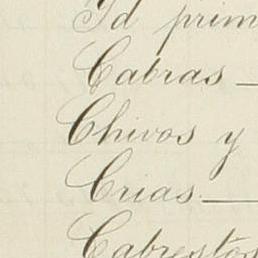 Id prim
Cabras —
Chivos y
Crias —
Cabrestos